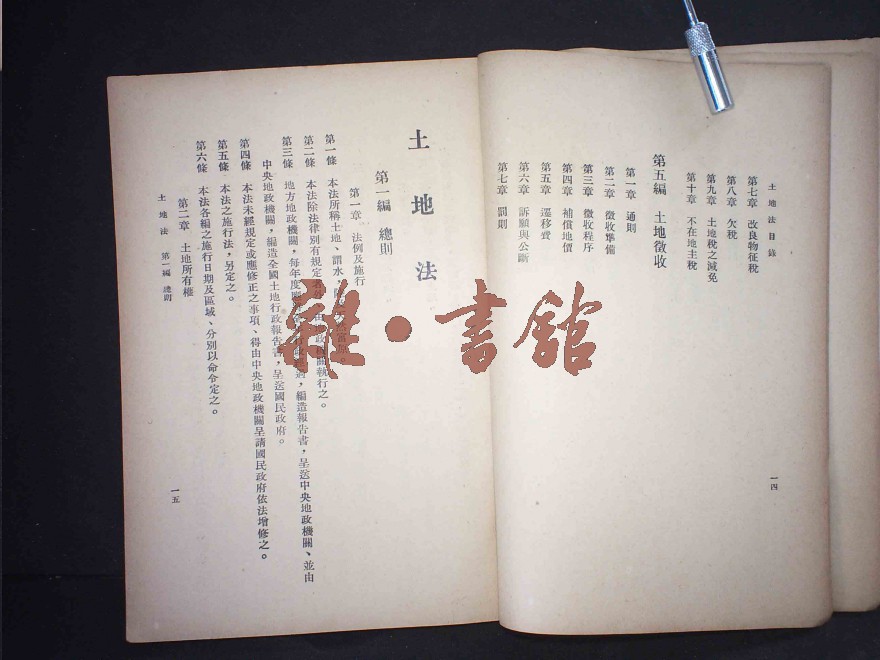 土地法目錄
第七章 改良物征稅
第八章 欠稅
第九章 土地稅之減免
第十章 不在地主稅
第五編 土地徵收
第一章 通則
第二章 徵收準備
第三章 徵收程序
第四章 補償地價
第五章 遷移費
第六章 訴願與公斷
第七章 罰則
一四
土地法
第一編 總則
第一章 法例及施行
第一條 本法所稱土地、謂水，陸
第二條 本法除法律別有規定者外 地政機關執行之。
第三條 地方地政機關，每年度 編造報告書，呈送中央地政機關、並由
中央地政機關，編造全國土地行政報告書，呈送國民政府。
第四條 本法未經規定或應修正之事項、得由中央地政機關呈請國民政府依法增修之。
第五條 本法之施行法，另定之。
第六條 本法各編之施行日期及區域、分別以命令定之。
第二章 土地所有權
土地法 第一編 總則
一五
雜·書館